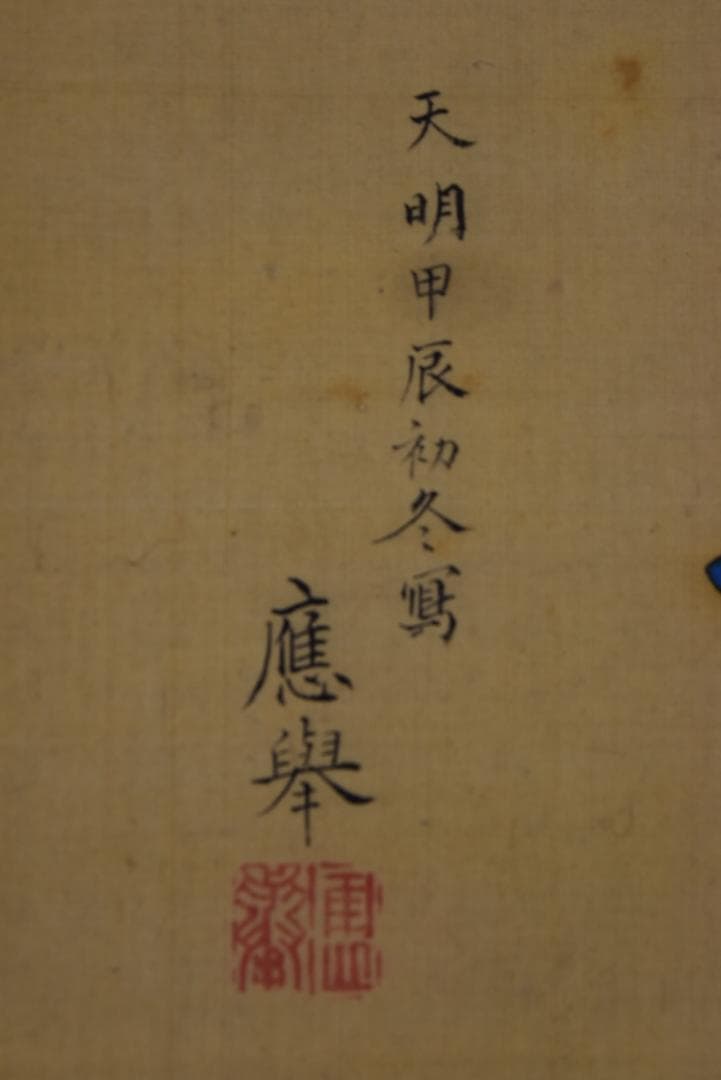 天明甲辰初冬寫
應舉